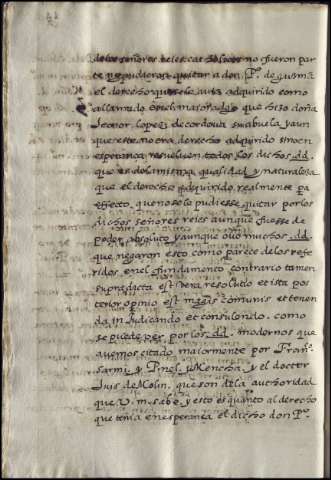 de los señores reies catholicos no fueron par
te ni pudieron quitar a don P.º de guzmā
el derecho que se le auia adquirido como
a llamado por el maioradgo que hizo doña
leonor lopez de cordoua su abuela y aun
que este no era derecho adquirido sino en
esperança resueluen todos los dichos .dd.
que es de la misma qualidad y naturaleza
que el derecho adquirido realmente pa
effecto, que no se le pudiesse quitar por los
dichos señores reies aunque fuesse de
poder absoluto y aunque ouo muchos .dd.
que negaron esto como parece de los refe
ridos en el fundamento contrario tamen
supradicta est vera resolutio et ista pos
terior opinio est magis comunis et tenen
da in judicando et consulendo. como
se puede ver por los .dd. modernos que
auemos citado maiormente por Fran.
sarmi. y Pinel. y Mencha. y el doctor
luis de Molin. que son de la authoridad
que V. m. sabe. y esto es quanto al derecho
que tenia en esperança el dicho don P.º